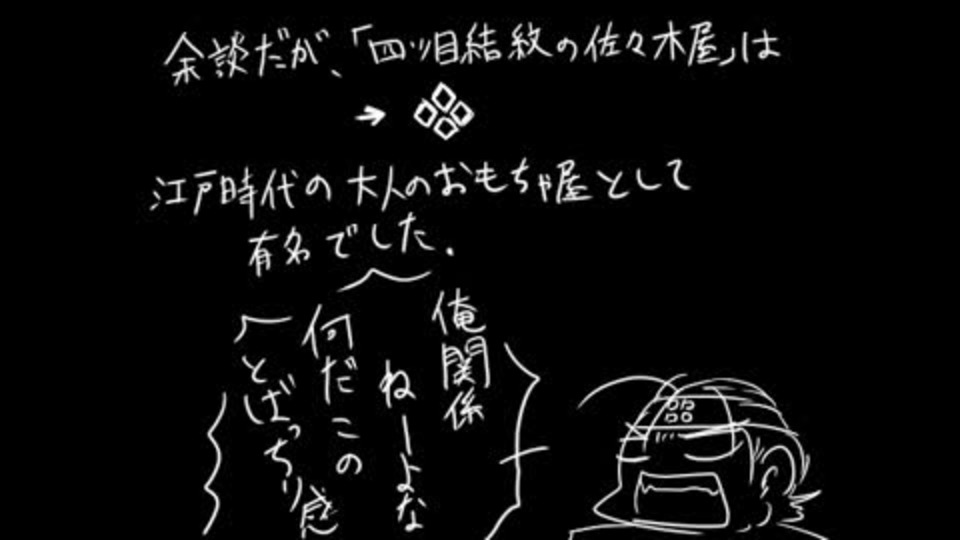 余談だが、「四ツ目結紋の佐々木屋」は
→
江戸時代の大人のおもちゃ屋として
有名でした.
俺関係
ねーよな
何だこの
とばっちり感